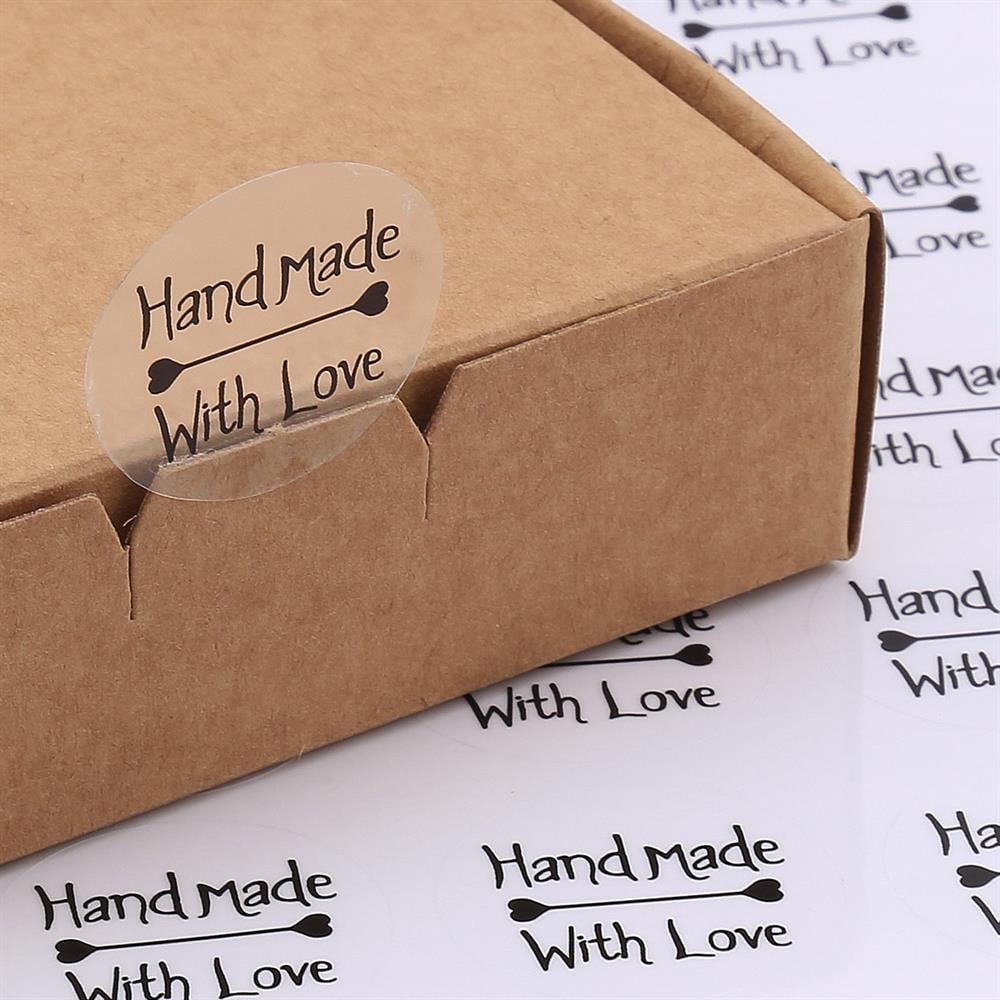 With Love
Made
Love
Hand Made
With Love
nd Ma
ith Lo
Hand
With
ade
With Love
Hand Made
With Love
Hand Made
With Love
Ha